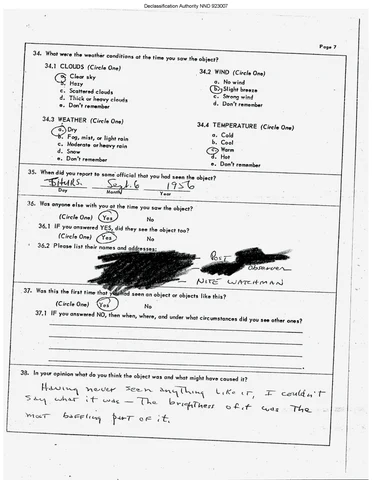 Declassification Authority NND 923007
Page 7
34. What were the weather conditions at the time you saw the object?
34.1 CLOUDS (Circle One)
a. Clear sky
b. Hazy
c. Scattered clouds
d. Thick or heavy clouds
e. Don't remember
34.2 WIND (Circle One)
a. No wind
b. Slight breeze
c. Strong wind
d. Don't remember
34.3 WEATHER (Circle One)
a. Dry
b. Fog, mist, or light rain
c. Moderate or heavy rain
d. Snow
e. Don't remember
34.4 TEMPERATURE (Circle One)
a. Cold
b. Cool
c. Warm
d. Hot
e. Don't remember
35. When did you report to some official that you had seen the object?
THURS. Sept. 6 1956
Day Month
36. Was anyone else with you at the time you saw the object?
(Circle One) Yes No
36.1 IF you answered YES, did they see the object too?
(Circle One) Yes No
36.2 Please list their names and addresses:
Post
Observer
NITE WATCHMAN
37. Was this the first time that you had seen an object or objects like this?
(Circle One) Yes No
37.1 IF you answered NO, then when, where, and under what circumstances did you see other ones?
38. In your opinion what do you think the object was and what might have caused it?
Having never seen anything like it, I couldn't
say what it was — The brightness of it was the
most baffling part of it.